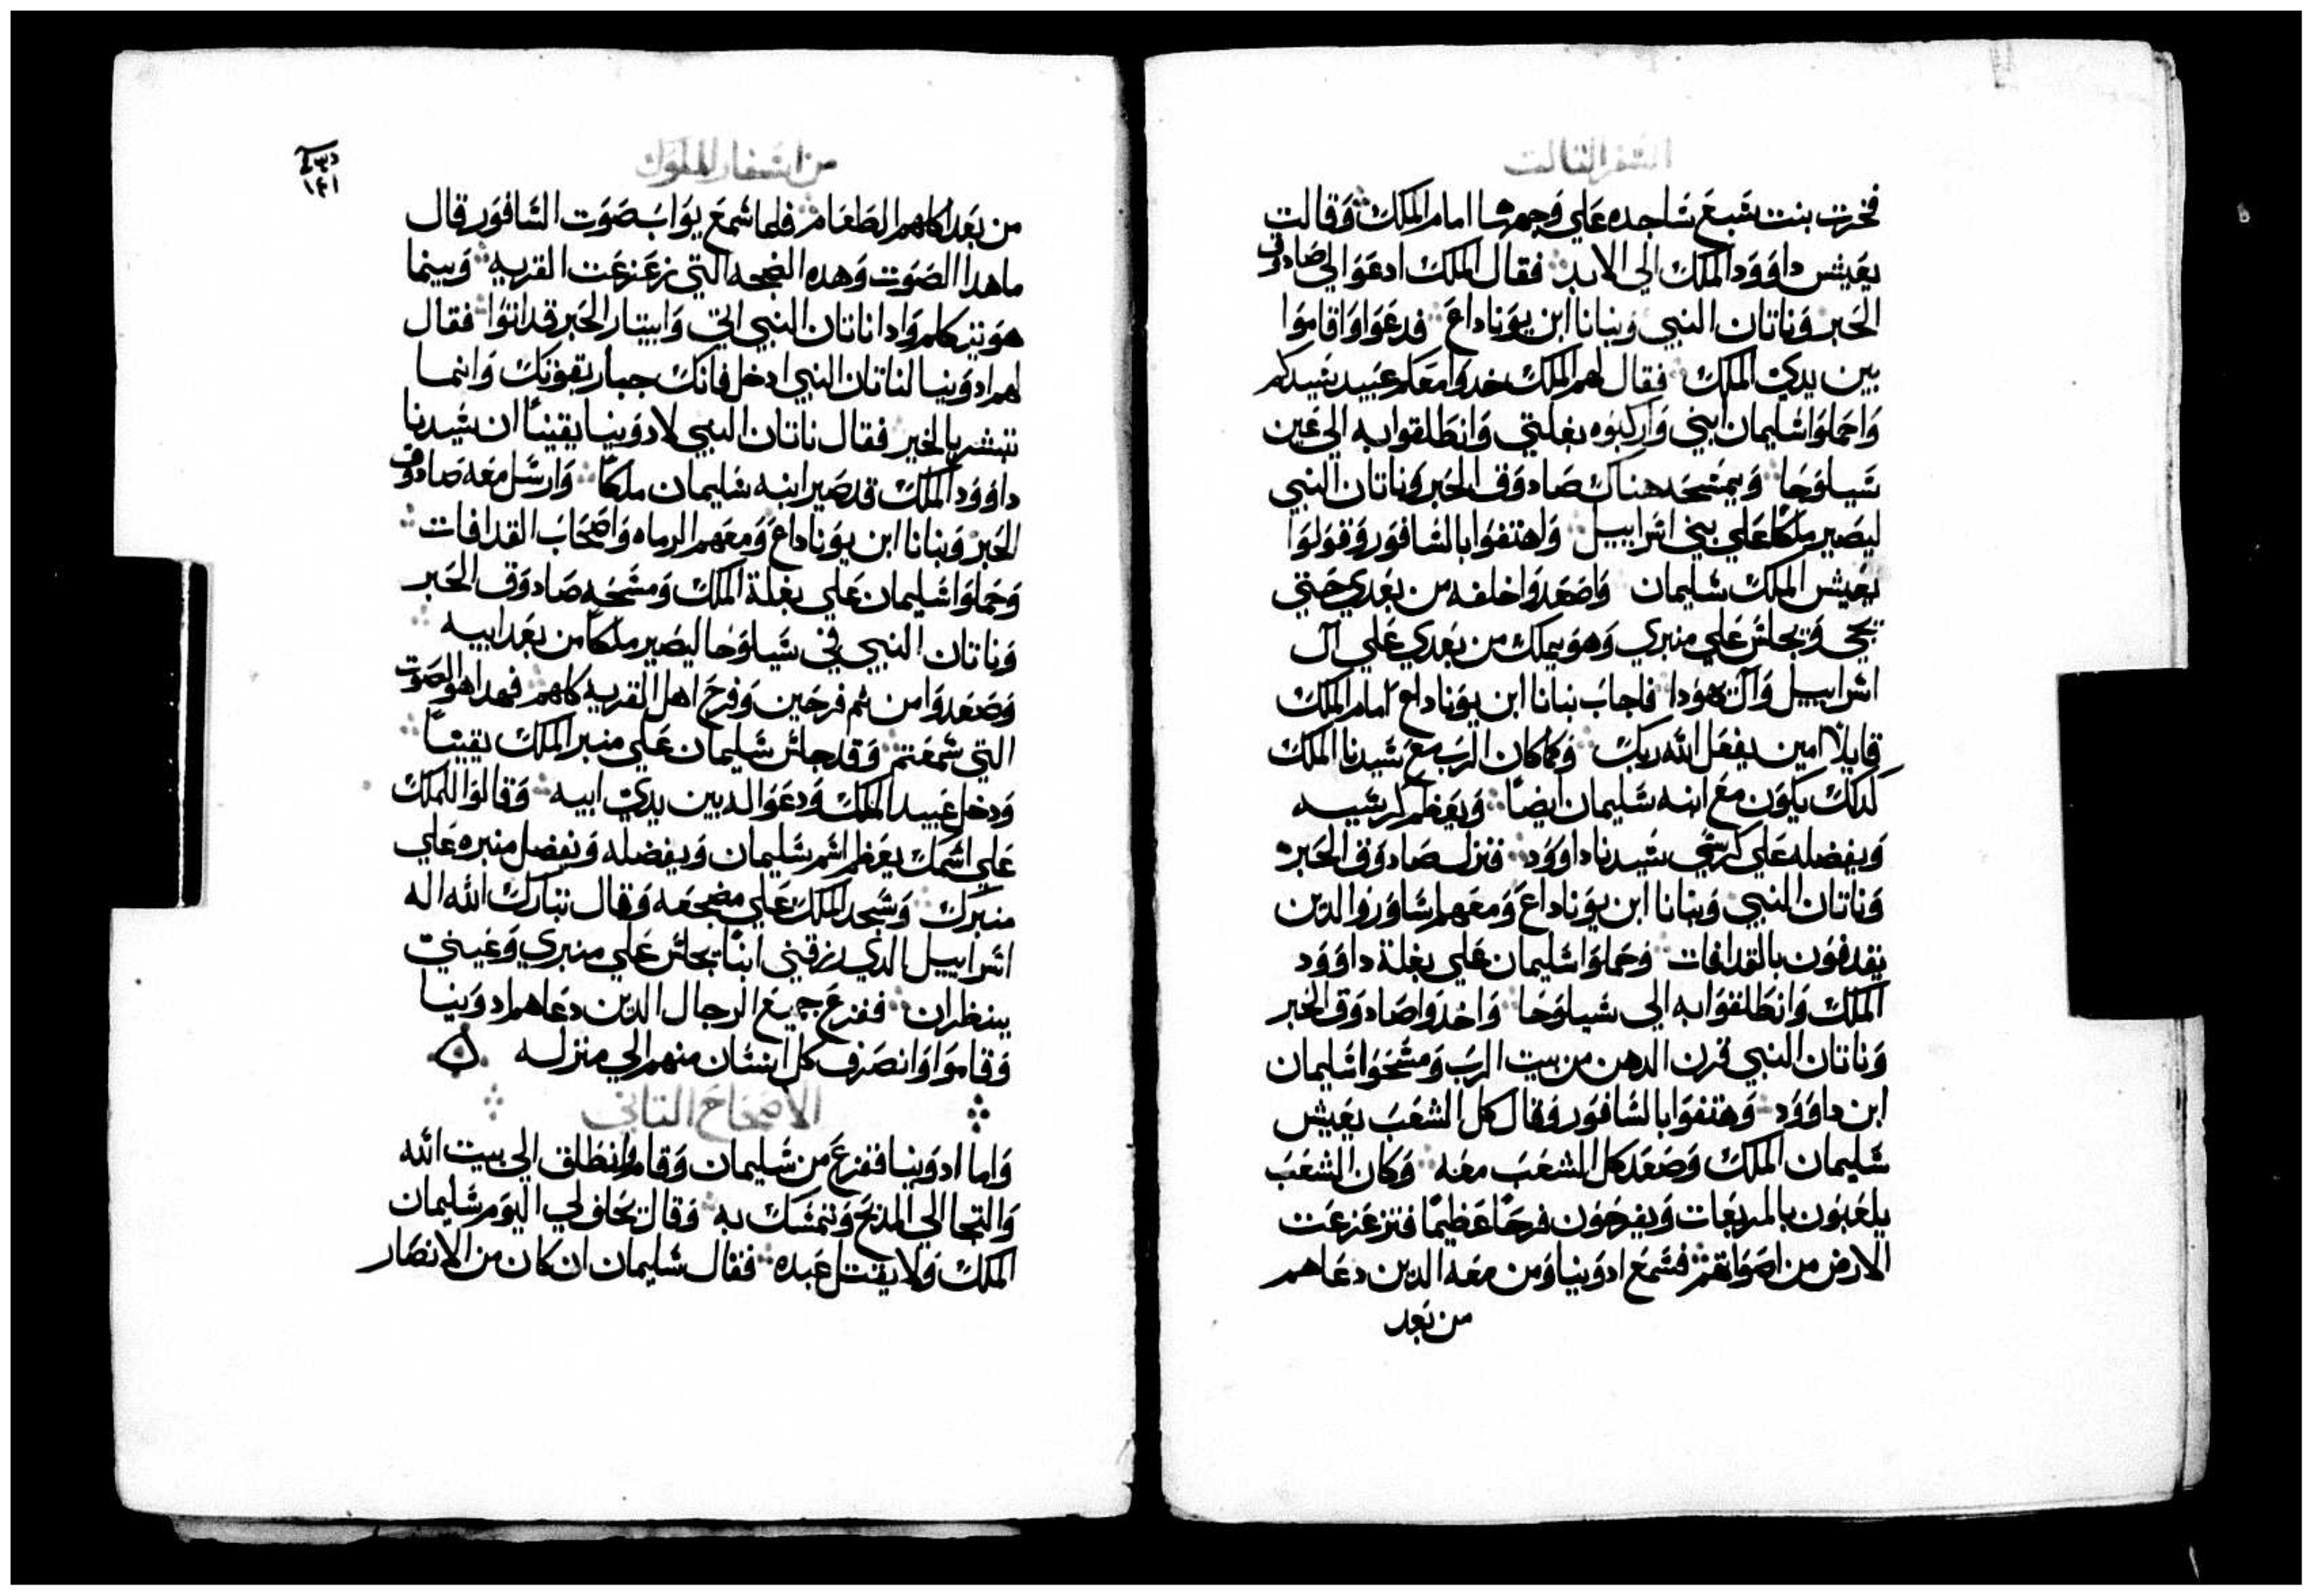 السفر التالت
فخرت بنت شبع ساجده علي وجهها امام الملك وقالت
يعيش داوود الملك الي الابد فقال الملك ادعوا لي صادوق
الحبر وناتان النبي وبنانا ابن يوناداع فدعوا واقاموا
بين يدي الملك فقال لهم الملك خدوا معكم عبيد سيدكم
واحملوا سليمان ابني واركبوه بغلتي وانطلقوا به الي عين
شيلوحا ويمسحه هناك صادوق الحبر وناتان النبي
ليصير ملكا علي بني اسراييل واهتفوا بالسافور وقولوا
يعيش الملك سليمان واصعدوا خلفه من بعدي حتي
يجي ويجلس علي منبري وهو يملك من بعدي علي ال
اسراييل وال يهودا فاجاب بنانا ابن يوناداع امام الملك
قايلا امين يفعل الله ربك وكما كان الرب مع سيدنا الملك
كدلك يكون مع ابنه سليمان ايضا ويعظم كرسيه
ويفضله علي كرسي سيدنا داوود فنزل صادوق الحبر
وناتان النبي وبنانا ابن يوناداع ومعهم شاورو الدين
يقدفون بالقدافات وحملوا سليمان علي بغلة داوود
الملك وانطلقوا به الي شيلوحا واخدوا صادوق الحبر
وناتان النبي قرن الدهن من بيت الرب ومسحوا سليمان
ابن داوود وهتفوا بالسافور وقال كل الشعب يعيش
سليمان الملك وصعد كل الشعب معه وكان الشعب
يلعبون بالمربعات ويفرحون فرحا عظيما فتزعزعت
الارض من اصواتهم فسمع ادونيا ومن معه الدين دعاهم
من بعد
من اسفار الملوك
١٤١
من بعد اكلهم الطعام فلما سمع يواب صوت السافور قال
ما هدا الصوت وهده الضجه التي زعزعت القريه وبينما
هو يتكلم وادا ناتان النبي اتي وابيتار الحبر قد اتوا فقال
لهم ادونيا لناتان النبي ادخل فانك جبار بقوتك وانما
تبشر بالخير فقال ناتان النبي لادونيا يقينا ان سيدنا
داوود الملك قد صير ابنه سليمان ملكا وارسل معه صادوق
الحبر وبنانا ابن يوناداع ومعهم الرماه واصحاب القدافات
وحملوا سليمان علي بغلة الملك ومسحه صادوق الحبر
وناتان النبي في شيلوحا ليصير ملكا من بعد ابيه
وصعدوا من تم فرحين وفرح اهل القريه كلهم فهدا هو الصوت
التي سمعتم وقد جلس سليمان علي منبر الملك يقينا
ودخل عبيد الملك ودعوا لد بين يدي ابيه وقالوا للملك
علي اسمك يعظم اسم سليمان ويفضله ويفضل منبره علي
منبرك وسجد الملك علي مضجعه وقال تبارك الله اله
اسراييل الدي رزقني ابنا يجلس علي منبري وعيني
ينظران ففزع جميع الرجال الدين دعاهم ادونيا
وقاموا وانصرف كل انسان منهم الي منزله
الاصحاح التاني
واما ادونيا ففزع من سليمان وقام وانطلق الي بيت الله
والتجا الي المذبح وتمسك به وقال يحلف لي اليوم سليمان
الملك ولا يقتل عبده فقال سليمان ان كان من الانصار